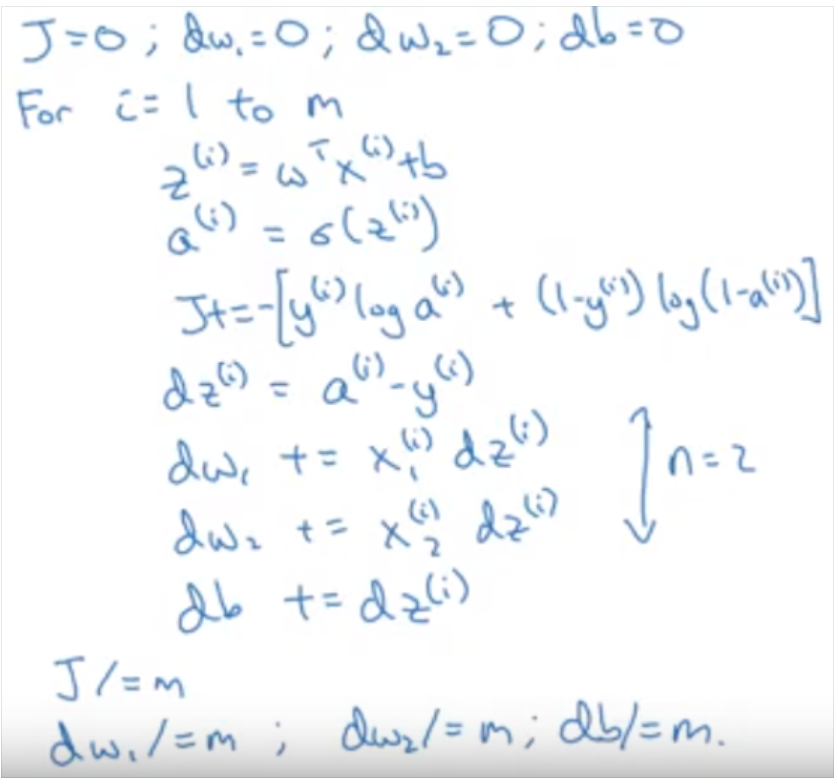 J=0; dw₁=0; dw₂=0; db=0
For i=1 to m
z⁽ⁱ⁾ = ωᵀx⁽ⁱ⁾+b
a⁽ⁱ⁾ = σ(z⁽ⁱ⁾)
J+=-[y⁽ⁱ⁾ log a⁽ⁱ⁾ + (1-y⁽ⁱ⁾) log(1-a⁽ⁱ⁾)]
dz⁽ⁱ⁾ = a⁽ⁱ⁾-y⁽ⁱ⁾
dw₁ += x₁⁽ⁱ⁾ dz⁽ⁱ⁾
dw₂ += x₂⁽ⁱ⁾ dz⁽ⁱ⁾
n=2
db += dz⁽ⁱ⁾
J/=m
dw₁/=m; dw₂/=m; db/=m.